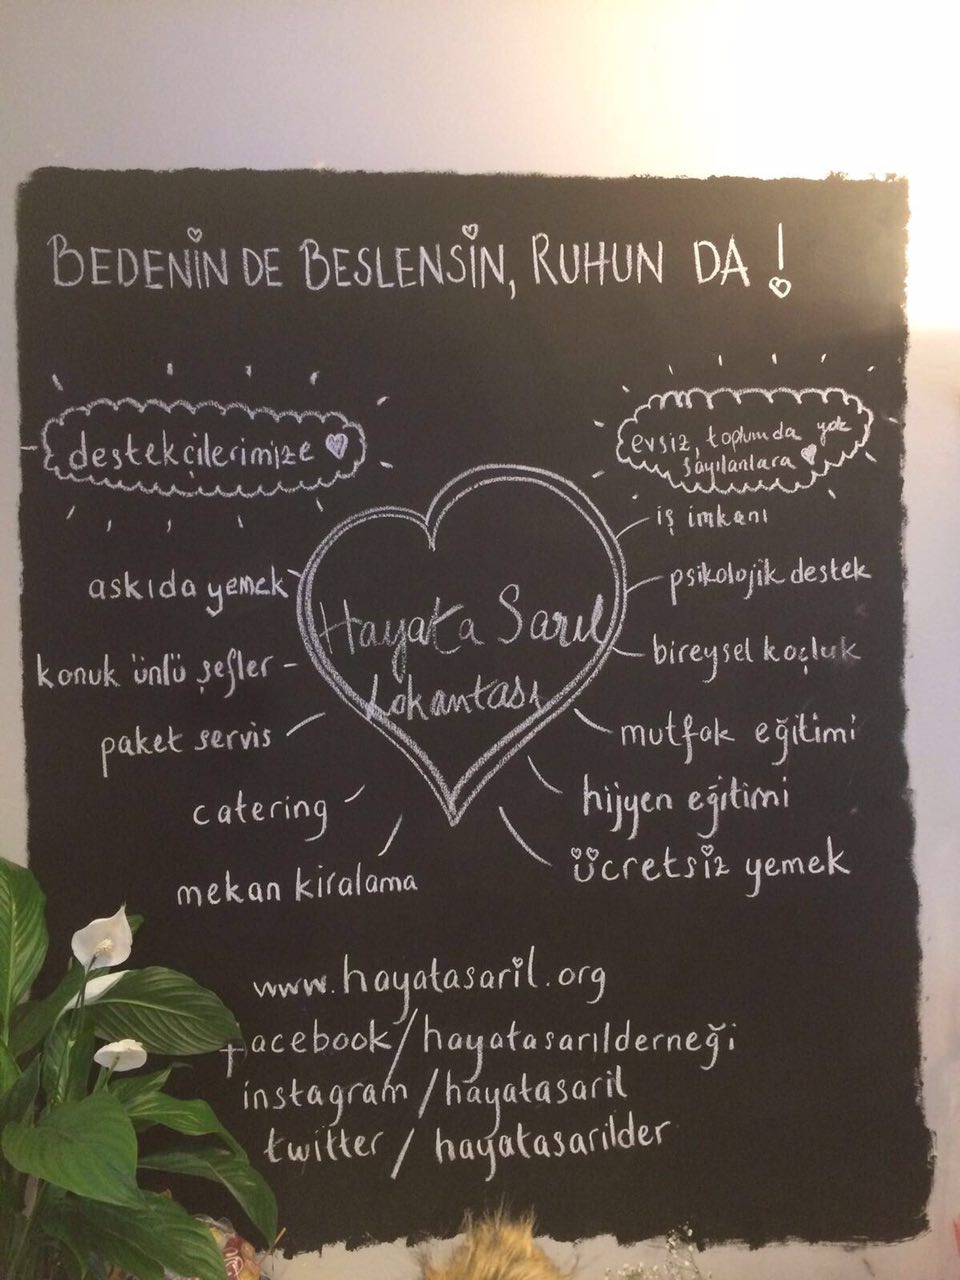 BEDENİN DE BESLENSİN, RUHUN DA!
destekçilerimize
askıda yemek
konuk ünlü şefler
paket servis
catering
mekan kiralama
Hayata Sarıl
Lokantası
evsiz, toplumda yok
sayılanlara
iş imkanı
psikolojik destek
bireysel koçluk
mutfak eğitimi
hijyen eğitimi
ücretsiz yemek
www.hayatasaril.org
facebook/hayatasarılderneği
instagram/hayatasaril
twitter/hayatasarilder